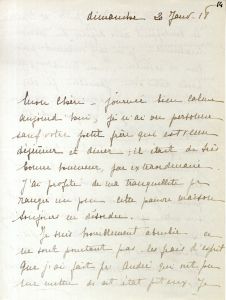 dimanche 20 Janv. 18
Mon Chéri – journée bien calme
aujourd'hui, je n'ai vu personne
sauf votre petit frère qui est venu
déjeuner et dîner ; il était de très
bonne humeur, par extraordinaire.
J'ai profité de ma tranquillité pr
ranger un peu cette pauvre maison
toujours en désordre.
Je suis horriblement abrutie, ce
ne sont pourtant pas les frais d'esprit
que j'ai fait pr André qui ont pu
me mettre ds cet état piteux. Je